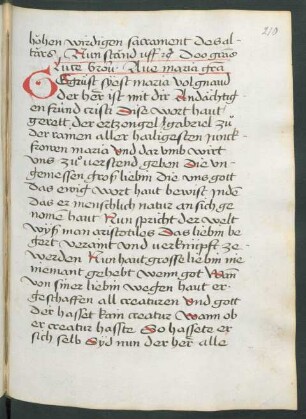 210
höhen wirdigen sacrament des al-
tars Nun stand uff Deo gras
Aue maria gra
Gegrüst syest maria vol gnaud
der her ist mit dir Andächtig
en fründ cristi Dise wort haut
gerett der ertzongel gabriel zů
der ramen aller hailigesten junck-
frowen maria Vnd dar vmb wirt
vns zů verstend geben die vn-
gemessen gros liebin die vns gott
das ewig wort haut bewist inde
das er menschlich natur an sich ge
nomen haut Nun spricht der welt
wyß man aristotiles Das liebin be
gert veraint vnd verknüpft ze
werden Nun haut grosse liebin nie
niemant gehebt wenn got Wan
von siner liebin wegen haut er
geschaffen all creaturen Vnd gott
der hasset kain creatur Wann ob
er creatur hasste So hassete er
sich selb Syd nun der her alle